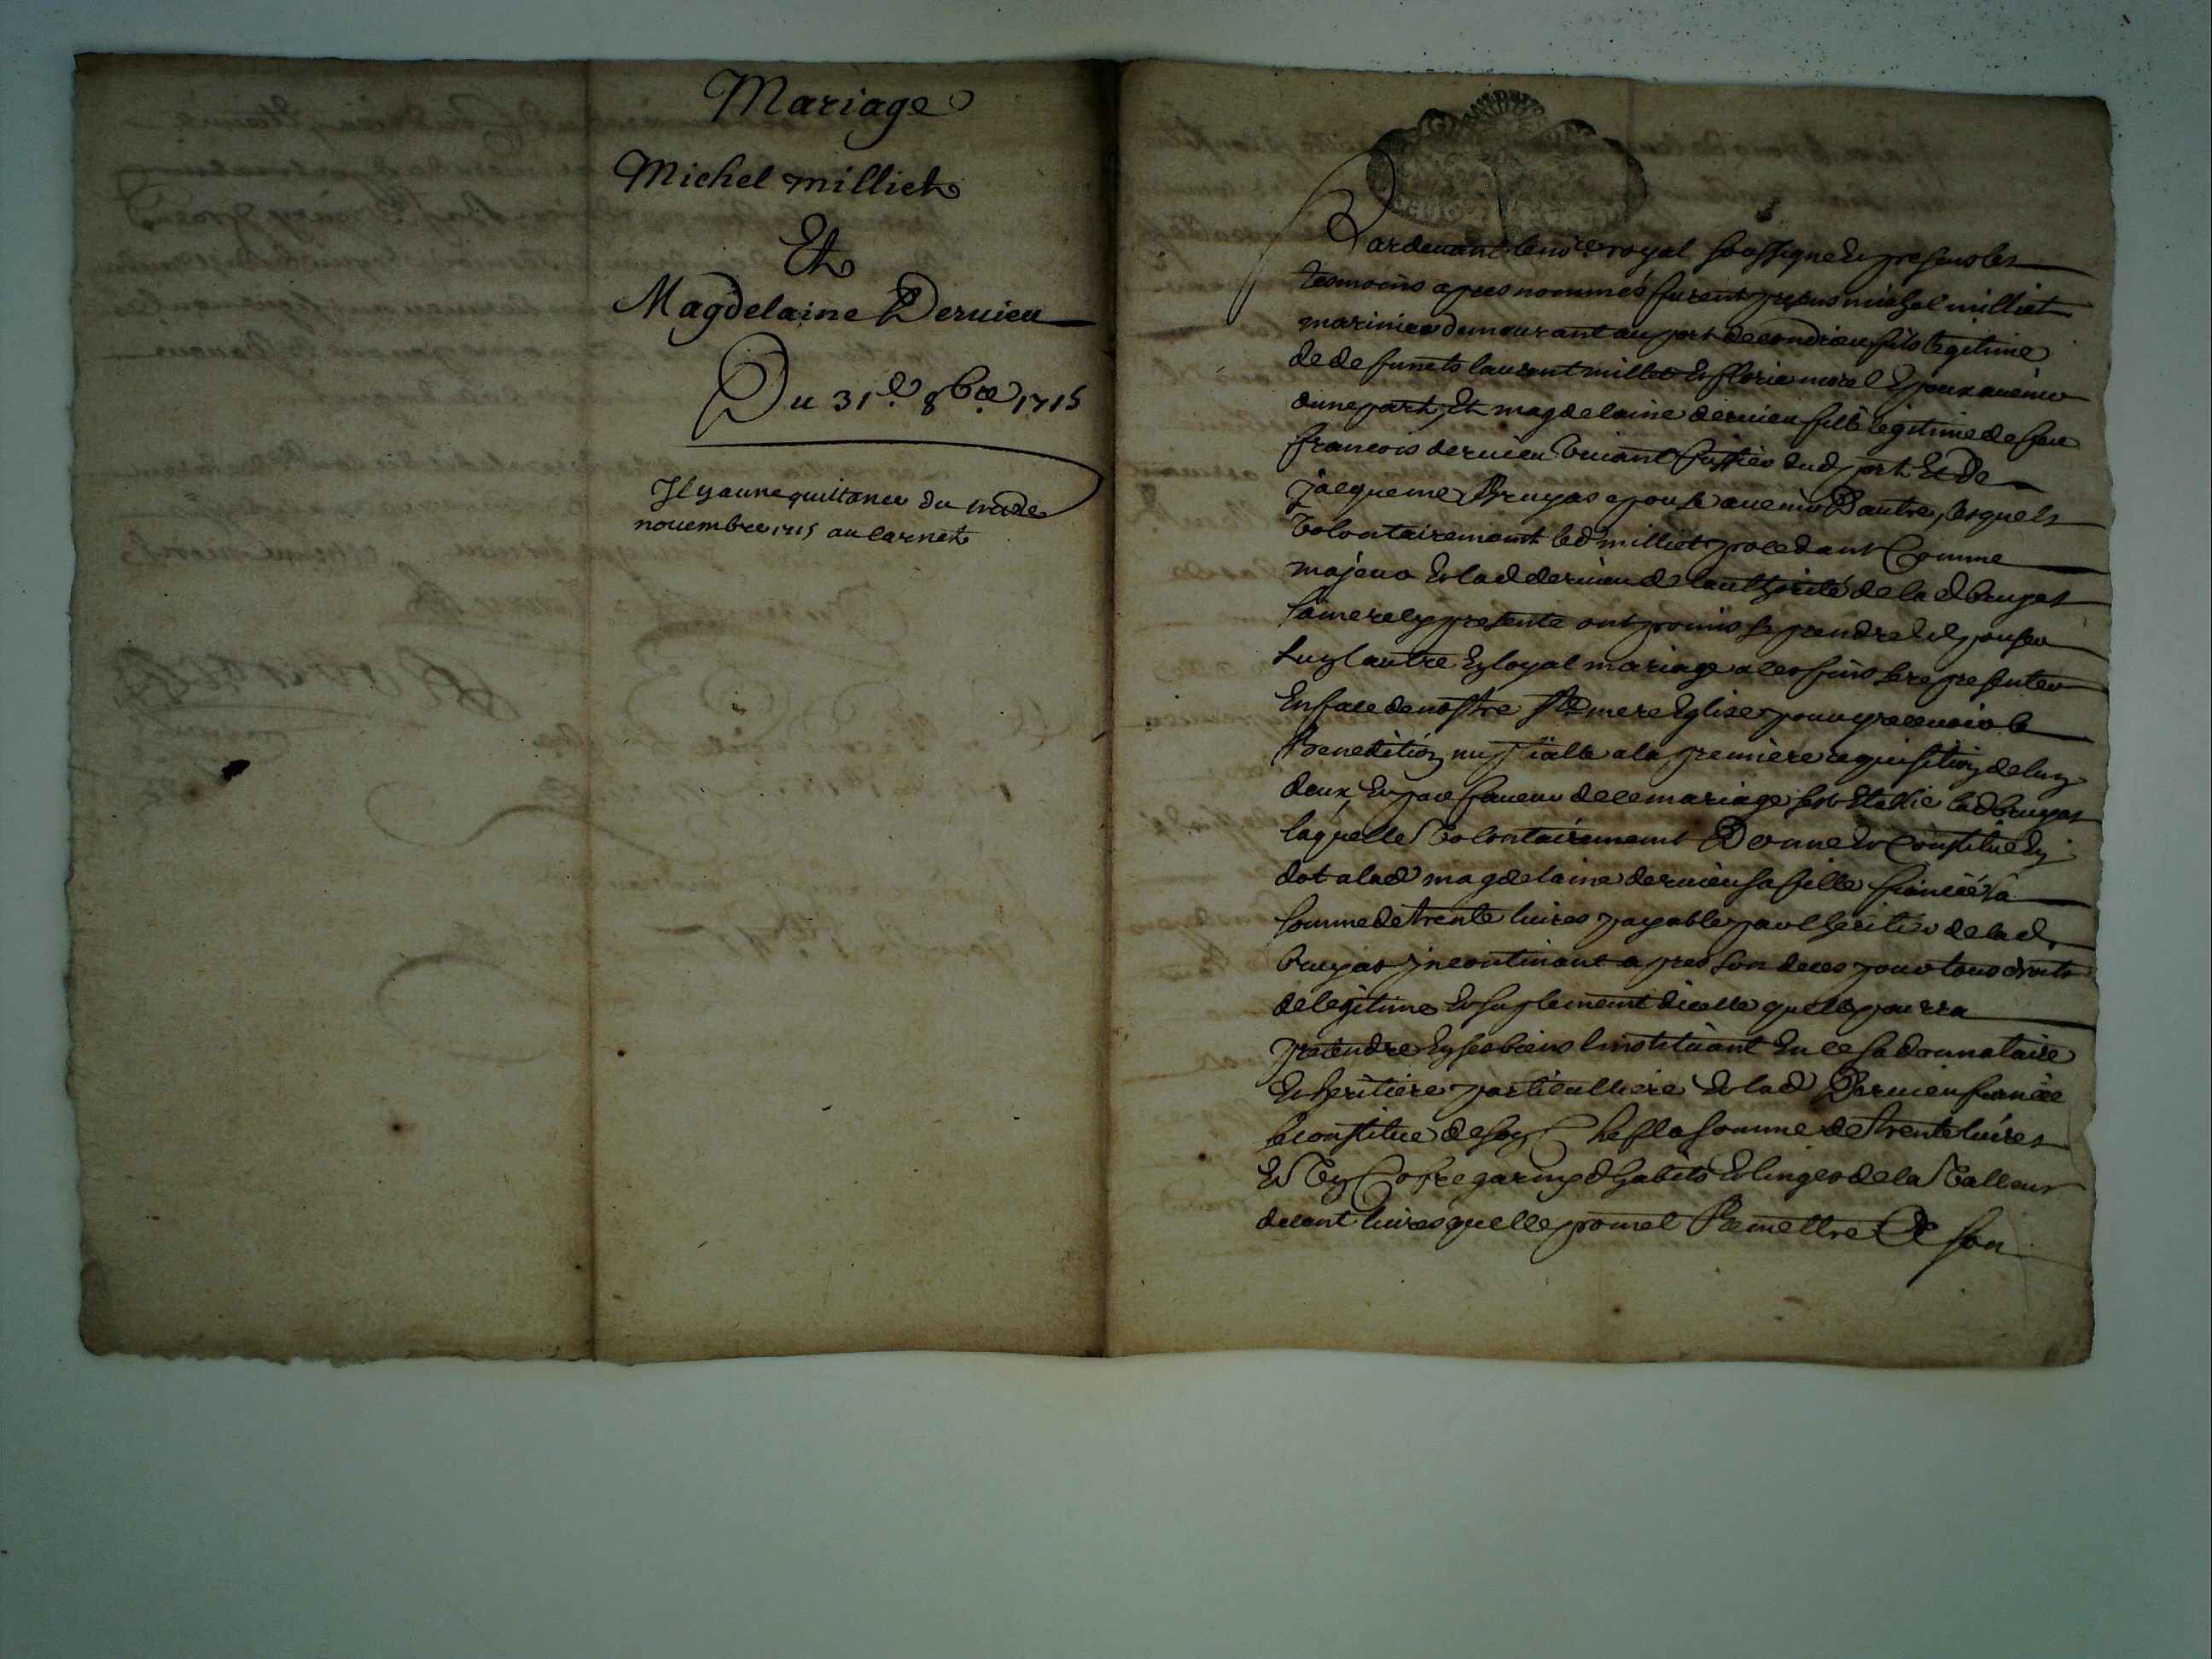 Mariage
Michel milliet
Et
Magdelaine Deruieu
Du 31e 8bre 1715
Il y a une quittance du
nouembre 1715 au carnet
Pardeuant le nore royal soussigne et presens les
tesmoins apres nommés furent presens michel milliet
marinier demeurant au port de condrieu fils legitime
de defuncts laurent milliet et florie morel espoux auenir
dune part, Et magdelaine deruieu fille legitime de feu
francois deruieu viuant dud port Et De
jacqueme Bruyas epouse auenir D'autre, lesquels
volontairement led milliet procedant Comme
majeur et lad deruieu de lauthorité de la d bruyas
sa mere icy presente ont promis se prendre et espouser
luy lautre en loyal mariage a ces fins se representer
En face de nostre ste mere Eglise pour y receuoir la
Benedition nuptialle a la premiere requisition de luy
deux, Et par faueur de ce mariage sest Etablie lad bruyas
laquelle volontairement Donne et Constitue en
dot a lad magdelaine deruieu sa fille fiancée la
somme de trente liures payable par lheritier de lad
bruyas incontinant apres son deces pour tous droits
de legitime et suplement dicelle quelle pourra
pretendre en ses biens linstituant en ce sa donnataire
et heritiere particulliere Et lad Deruieu fiancée
se constitue de son Chef la somme de trente liures
Et vn Cofre garny dhabits et linges de la valleur
de cent liures quelle promet Remettre A son